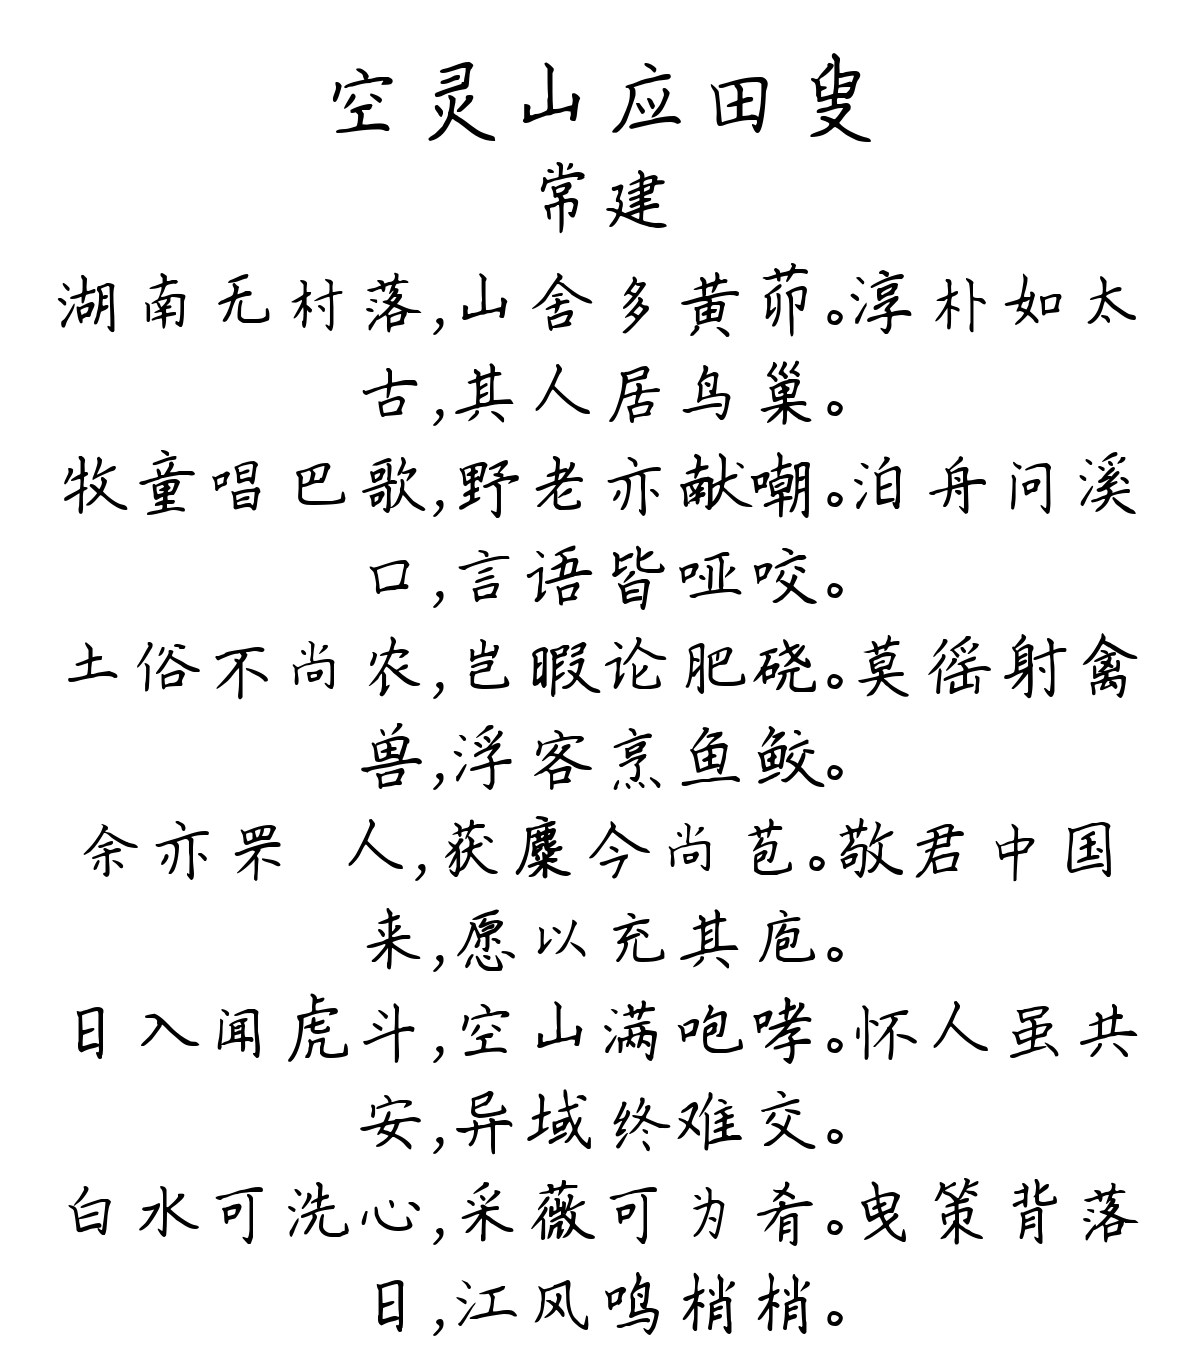 空灵山应田叟
常建
湖南无村落,山舍多黄茆。淳朴如太
古,其人居鸟巢。
牧童唱巴歌,野老亦献嘲。泊舟问溪
口,言语皆哑咬。
土俗不尚农,岂暇论肥硗。莫徭射禽
兽,浮客烹鱼鲛。
余亦罘 人,获麋今尚苞。敬君中国
来,愿以充其庖。
日入闻虎斗,空山满咆哮。怀人虽共
安,异域终难交。
白水可洗心,采薇可为肴。曳策背落
日,江风鸣梢梢。